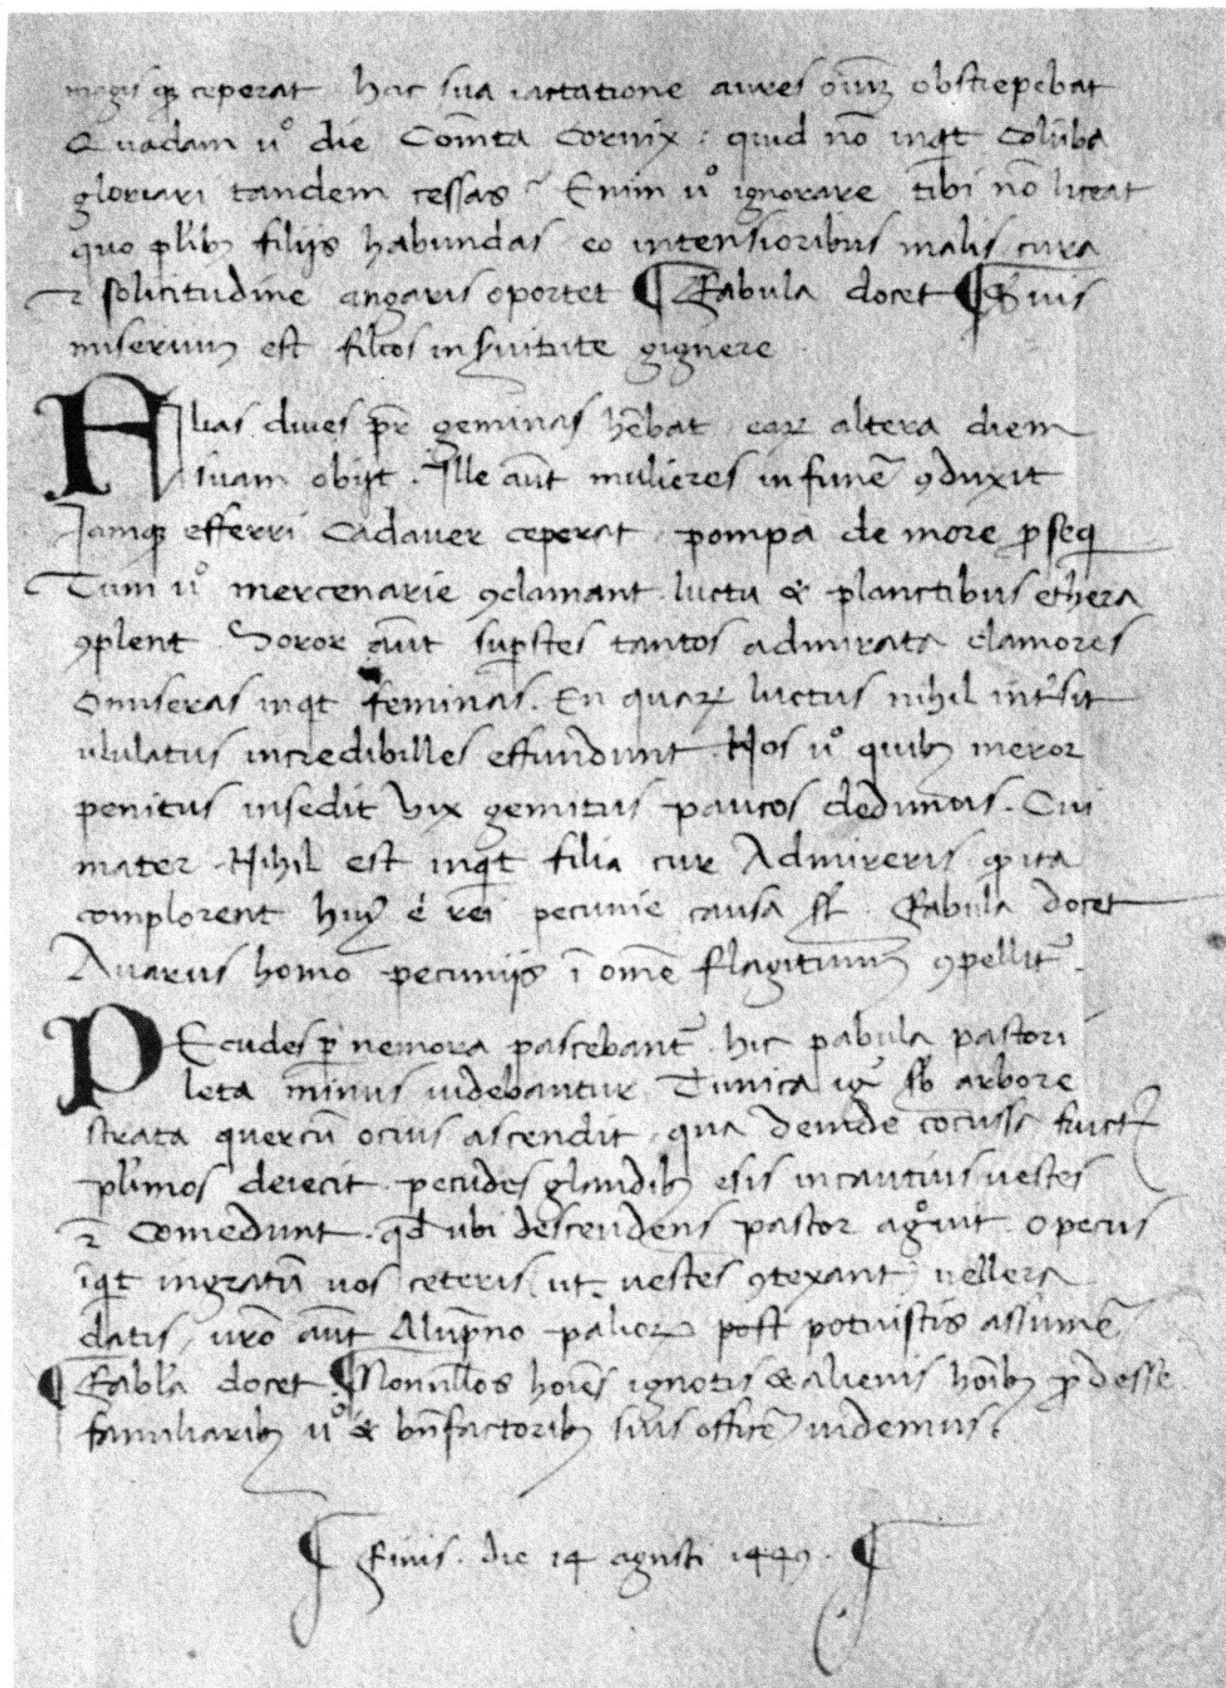 magis qꝫ ceperat hac sua iactatione aures oiūꝫ obstrepebat
Quadam uº die Com̄ta Cornix : quid nō inqt Colūba
gloriari tandem cessas ~ Enim uº ignorare tibi nō liceat
quo plibꝫ filijs habundas eo intensioribus malis cura
⁊ solicitudine angaris oportet ¶ Fabula docet ¶ Suis
miseriuꝫ est filios in suitute gignere
Alias diues pr̄ geminas hēbat eaꝝ altera diem
suam obijt . Ille aūt mulieres in funē ꝯduxit
Iamqꝫ efferri Cadauer ceperat pompa de more ꝓseq
Tum uº mercenarie ꝯclamant luctu & planctibus ethera
ꝯplent Soror aūt suꝑstes tantos admirata clamores
O miseras inqt feminas . En quaꝝ luctus nihil int̄sit
ululatus incredibilles effundunt . Nos uº quibꝫ meror
penitus insedit vix gemitus paucos dedimus . Cui
mater Nihil est inqt filia cur Admireris ꝙ ita
complorent huiꝰ ē rei pecunie causa st̄ . Fabula docet
Auarus homo pecunijs ī omē flagitiuꝫ ꝯpellit᷑ .
PEcudes ꝑ nemora pascebant᷑ hic pabula pastori
leta minus uidebantur Tunica ig᷑ sb̄ arbore
strata quercū ocius ascendit qua deinde cōcussa fruct
pl̄imos deiecit pecudes glandibꝫ esis incautius uestes
⁊ Comedunt . qd̄ ubi descendens pastor agºuit o pecus
īqt ingratū uos ceteris ut uestes ꝯtexant uellera
datis uro aūt post potuistis assumē
¶ Fabl̄a docet ¶ Nonullos hoīes ignotis & alienis hoībꝫ ꝓdesse
familiaribꝫ uº & bn̄factoribꝫ suis officē uidemus .
¶ Finis . die 14 agusti 1449 . ¶